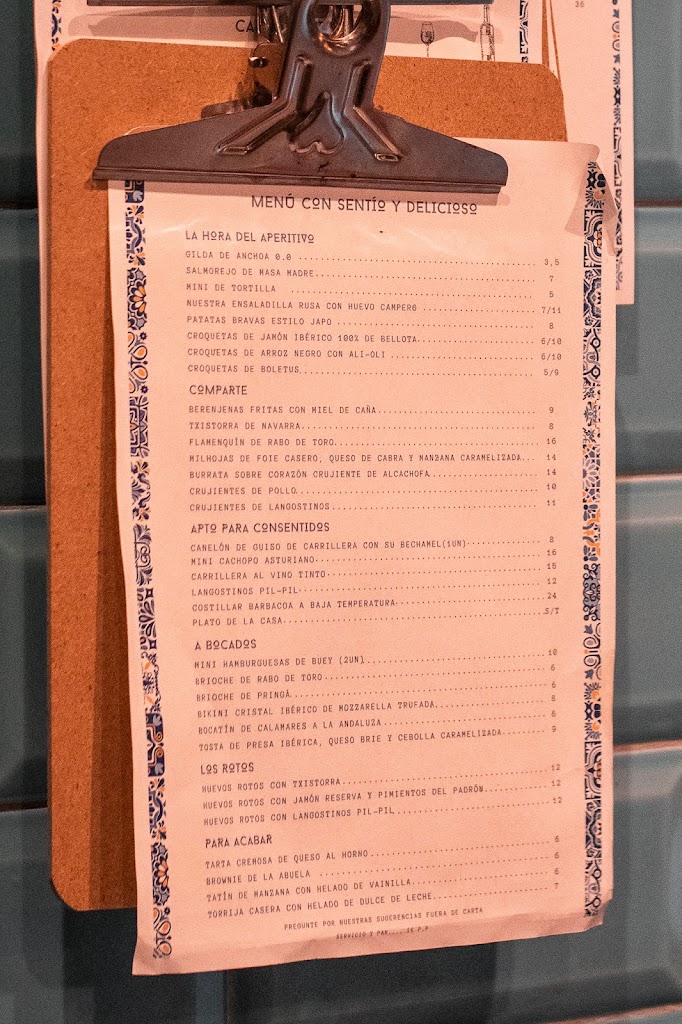 CA
36
MENÚ CON SENTÍO Y DELICIOSO
LA HORA DEL APERITIVO
GILDA DE ANCHOA 0.0 ........ 3,5
SALMOREJO DE MASA MADRE........ 7
MINI DE TORTILLA ........ 5
NUESTRA ENSALADILLA RUSA CON HUEVO CAMPERO ........ 7/11
PATATAS BRAVAS ESTILO JAPO ........ 8
CROQUETAS DE JAMÓN IBÉRICO 100% DE BELLOTA........ 6/10
CROQUETAS DE ARROZ NEGRO CON ALI-OLI ........ 6/10
CROQUETAS DE BOLETUS........ 5/9
COMPARTE
BERENJENAS FRITAS CON MIEL DE CAÑA........ 9
TXISTORRA DE NAVARRA........ 8
FLAMENQUÍN DE RABO DE TORO........ 16
MILHOJAS DE FOIE CASERO, QUESO DE CABRA Y MANZANA CARAMELIZADA... 14
BURRATA SOBRE CORAZÓN CRUJIENTE DE ALCACHOFA........ 14
CRUJIENTES DE POLLO........ 10
CRUJIENTES DE LANGOSTINOS ........ 11
APTO PARA CONSENTIDOS
CANELÓN DE GUISO DE CARRILLERA CON SU BECHAMEL(1UN)........ 8
MINI CACHOPO ASTURIANO........ 16
CARRILLERA AL VINO TINTO........ 15
LANGOSTINOS PIL-PIL........ 12
COSTILLAR BARBACOA A BAJA TEMPERATURA........ 24
PLATO DE LA CASA........ S/T
A BOCADOS
MINI HAMBURGUESAS DE BUEY (2UN)........ 10
BRIOCHE DE RABO DE TORO........ 6
BRIOCHE DE PRINGÁ........ 6
BIKINI CRISTAL IBÉRICO DE MOZZARELLA TRUFADA........ 8
BOCATÍN DE CALAMARES A LA ANDALUZA ........ 6
TOSTA DE PRESA IBÉRICA, QUESO BRIE Y CEBOLLA CARAMELIZADA........ 9
LOS ROTOS
HUEVOS ROTOS CON TXISTORRA........ 12
HUEVOS ROTOS CON JAMÓN RESERVA Y PIMIENTOS DEL PADRÓN........ 12
HUEVOS ROTOS CON LANGOSTINOS PIL-PIL........ 12
PARA ACABAR
TARTA CREMOSA DE QUESO AL HORNO........ 6
BROWNIE DE LA ABUELA ........ 6
TATÍN DE MANZANA CON HELADO DE VAINILLA........ 6
TORRIJA CASERA CON HELADO DE DULCE DE LECHE........ 7
PREGUNTE POR NUESTRAS SUGERENCIAS FUERA DE CARTA
SERVICIO Y PAN.... 1€ P.P